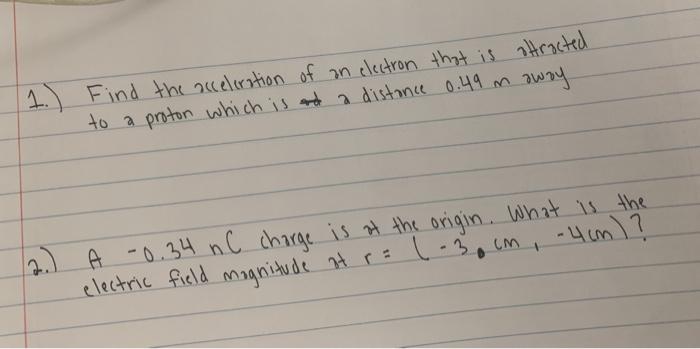 1.) Find the acceleration of an electron that is attracted
to a proton which is a distance 0.49 m away
2.) A -0.34 nC charge is at the origin. What is the
electric field magnitude at r = (-3 cm, -4cm)?